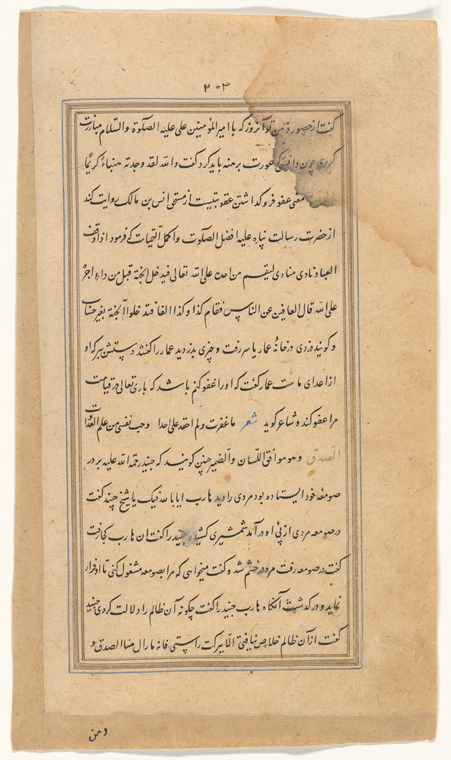 ۲۰۴
گفت از حضور ذهن تو آنروز که با امیرالمؤمنین علی علیه الصلوة والسلام مبارزت
کردی چون دانستی که عورت برهنه باید کرد گفت والله لقد وجدته کریما
معنی عفو فروگذاشتن عقوبتست از مستحق انس بن مالک روایت کند
از حضرت رسالت پناه علیه افضل الصلوت واکمل التحیات که فرمود اذا وقف
العباد نادی منادی لیقم من اجره علی الله تعالی فیدخل الجنة قیل من ذا له اجر
علی الله قال العافین عن الناس فقام کذا وکذا الفا فدخلوا الجنة بغیر حساب
و گویند دزدی در خانهٔ عمار یاسر رفت و چیزی بدزدید عمار را گفتند دستش ببر که او
از اعدای ماست عمار گفت که او را عفو کنم باشد که باری تعالی در قیامت
مرا عفو کند و شاعر گوید شعر ما غفرت ولم احقد علی احد وجب نفسی من علم العذاب
الصدق وهو موافق اللسان والضمیر چنین گویند که جنید رحمة الله علیه بر در
صومعه خود ایستاده بود مردی را دید هارب ایا بالله فیک یا شیخ جنید گفت
در صومعه مردی از پی او درآمد شمشیری کشیده جنید را گفت آن هارب کجا رفت
گفت در صومعه رفت مرد در خشم شد و گفت میخواهی که مرا بصومعه مشغول کنی تا او فرار
نماید و درگذشت آنگاه هارب جنید را گفت چگونه آن ظالم را دلالت کردی جنید
گفت از آن ظالم خلاص نیافتی الا ببرکت راستی فانه ما زال هنا الصدق و
و من